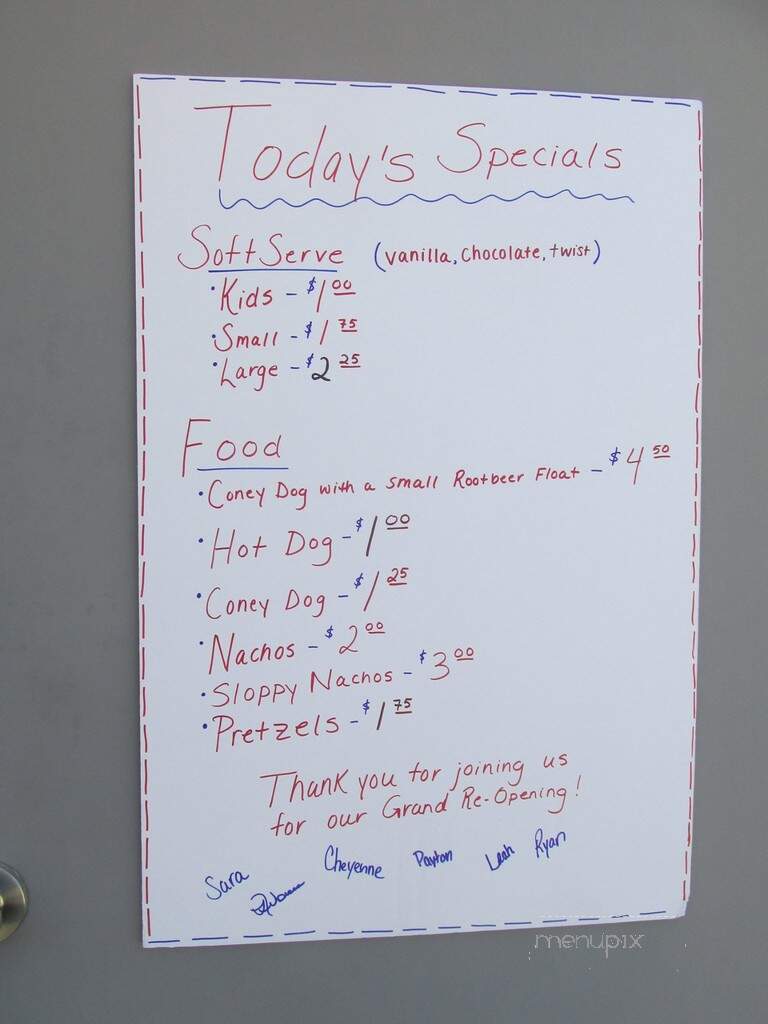 Today's Specials
Soft Serve (vanilla, chocolate, twist)
• Kids - $1 00
• Small - $1 75
• Large - $2 25
Food
• Coney Dog with a small Rootbeer Float - $4 50
• Hot Dog - $1 00
• Coney Dog - $1 25
• Nachos - $2 00
• Sloppy Nachos - $3 00
• Pretzels - $1 75
Thank you for joining us
for our Grand Re-Opening!
Sara Cheyenne Payton Leah Ryan
menupix